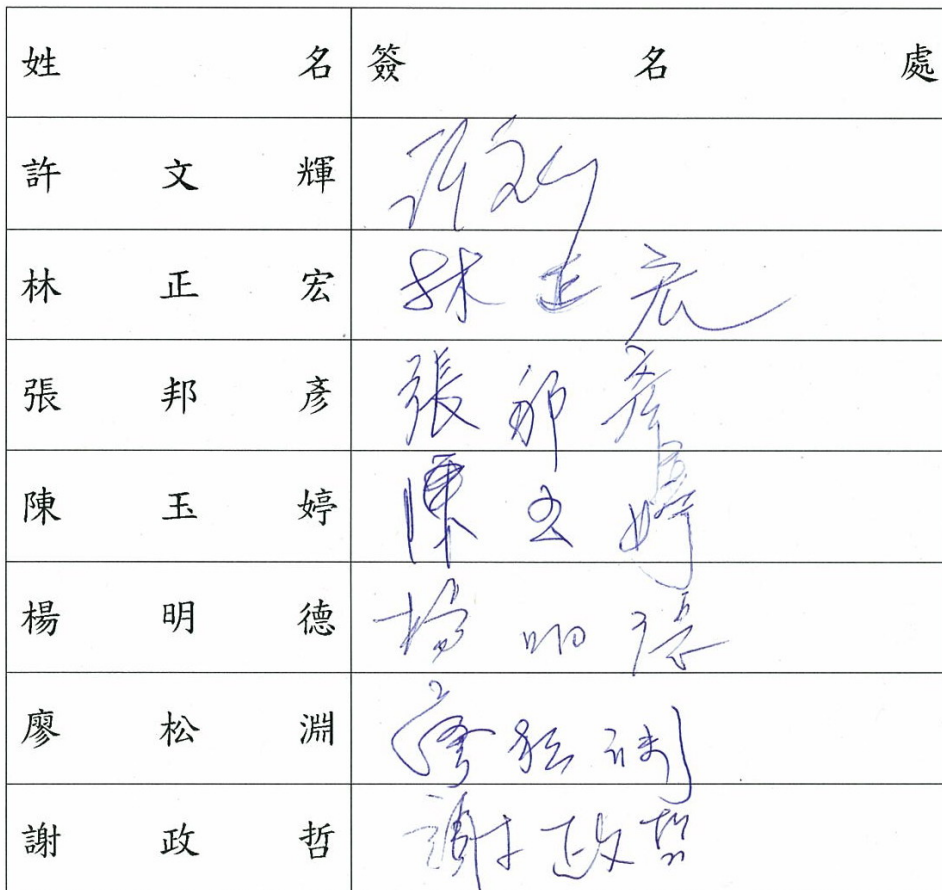 姓名 簽名處
許文輝 許文輝
林正宏 林正宏
張邦彥 張邦彥
陳玉婷 陳玉婷
楊明德 楊明德
廖松淵 廖松淵
謝政哲 謝政哲